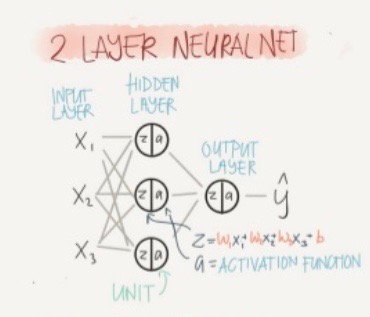 2 LAYER NEURALNET
INPUT LAYER
HIDDEN LAYER
OUTPUT LAYER
X₁
X₂
X₃
z a
z a
z a
z a
ŷ
Z=W₁X₁+W₂X₂+W₃X₃+b
a = ACTIVATION FUNCTION
UNIT